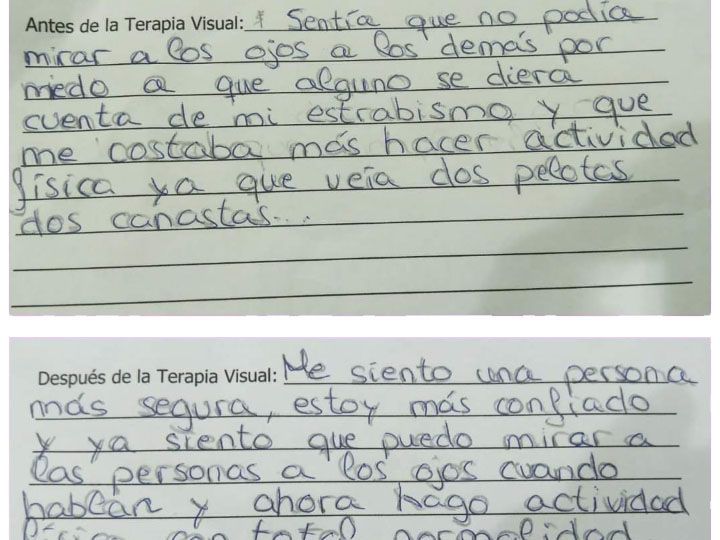 Antes de la Terapia Visual: Sentía que no podía
mirar a los ojos a los demás por
miedo a que alguno se diera
cuenta de mi estrabismo y que
me costaba más hacer actividad
física ya que veía dos pelotas
dos canastas...
Después de la Terapia Visual: Me siento una persona
más segura, estoy más confiado
y ya siento que puedo mirar a
las personas a los ojos cuando
hablan y ahora hago actividad
física con total normalidad